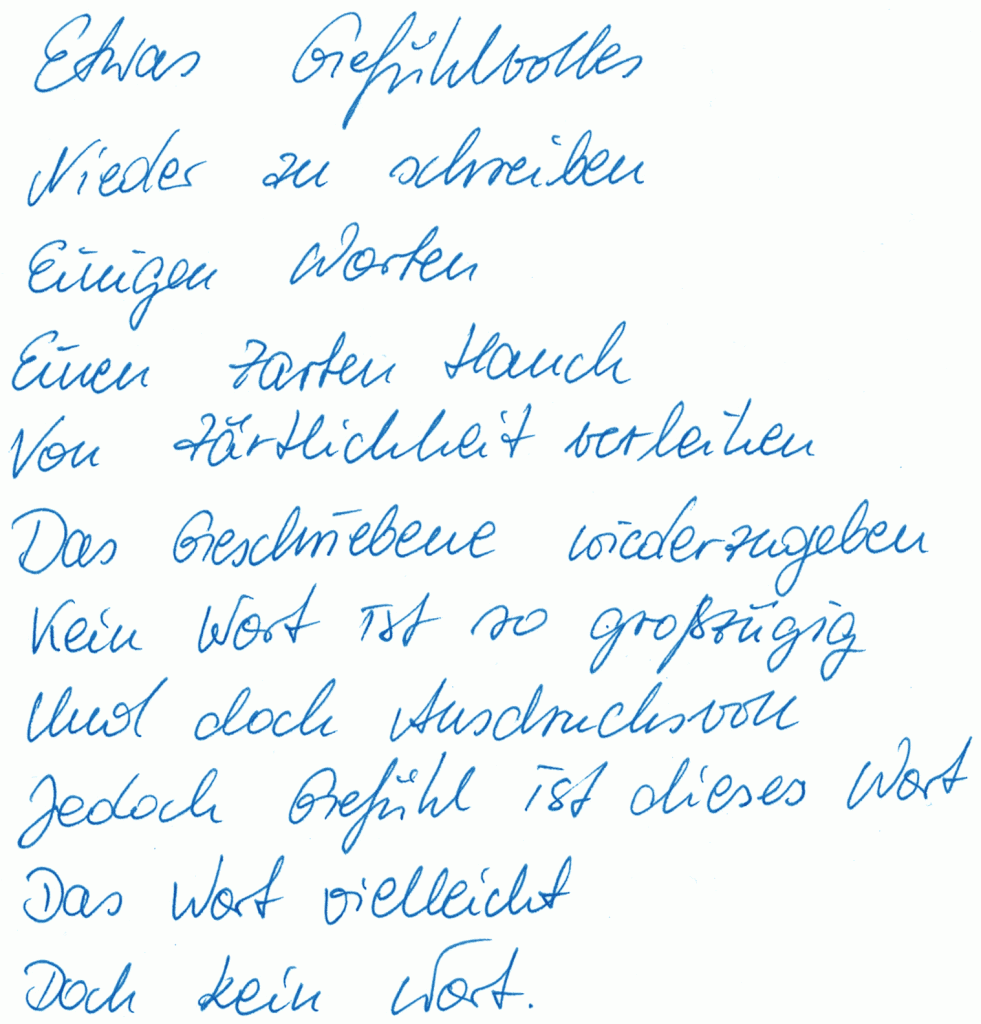 Etwas Gefühlvolles
Nieder zu schreiben
Einigen Worten
Einen zarten Hauch
Von Zärtlichkeit verleihen
Das Geschriebene wiederzugeben
Kein Wort ist so großzügig
Und doch Ausdrucksvoll
Jedoch Gefühl ist dieses Wort
Das Wort vielleicht
Doch kein Wort.